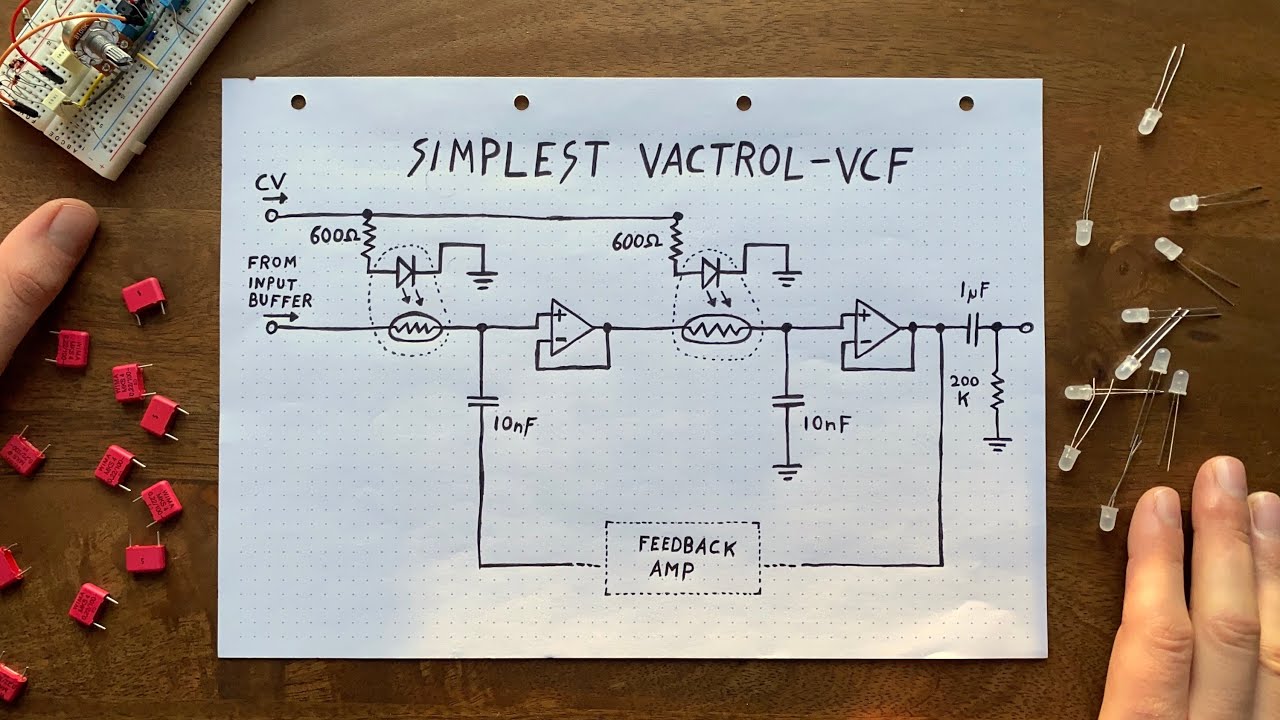 SIMPLEST VACTROL-VCF
CV
600Ω
600Ω
FROM
INPUT
BUFFER
+
-
+
-
1μF
200
K
10nF
10nF
FEEDBACK
AMP